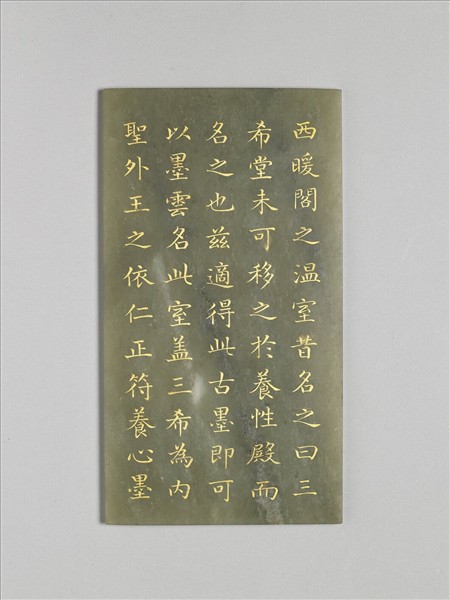 西暖閣之温室昔名之曰三
希堂未可移之於養性殿而
名之也兹適得此古墨即可
以墨雲名此室盖三希為内
聖外王之依仁正符養心墨